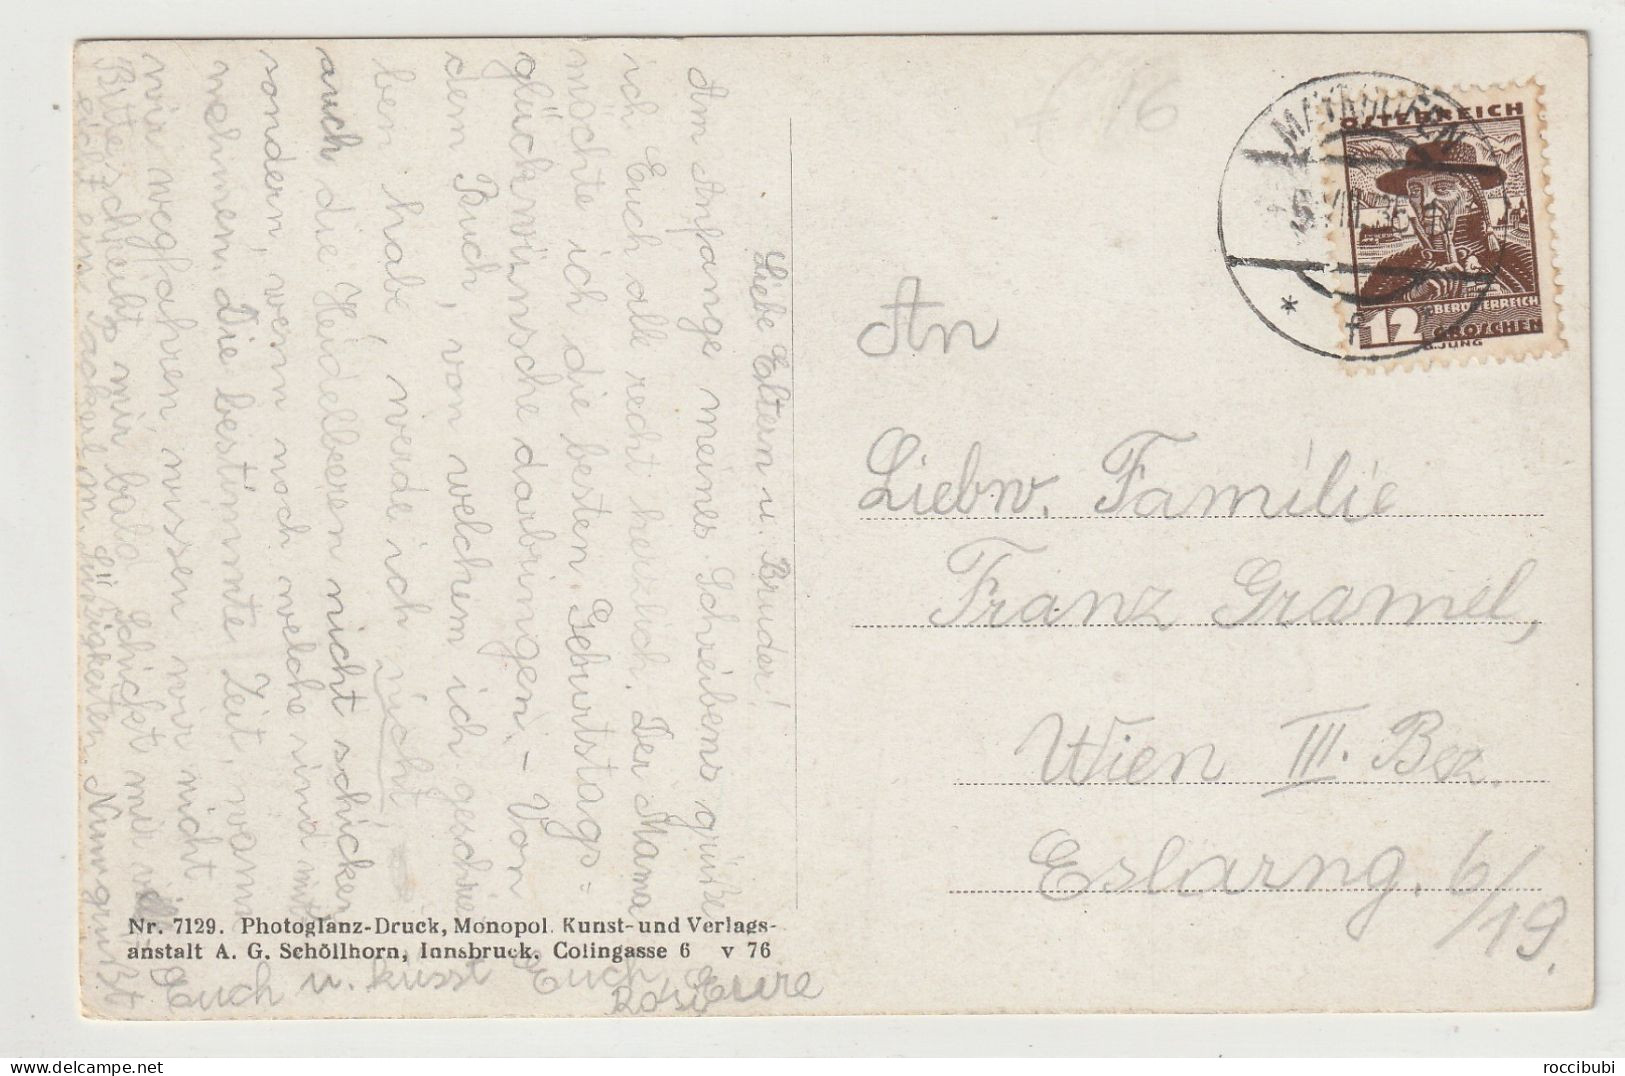 Liebe Eltern u. Bruder!
Am Anfange meines Schreibens grüße
ich Euch alle recht herzlich. Der Mama
möchte ich die besten Geburtstags=
glückwünsche darbringen. - Von
dem Buch, von welchem ich geschrie
ben habe, werde ich nicht
auch die Heidelbeeren nicht schicken
sondern, wenn noch welche sind mit
nehmen. Die bestimmte Zeit, wann
wir wegfahren wissen wir nicht.
Bitte schreibt mir bald. Schickt mir
ein Sackerl m. Süßigkeiten. Nun grüßt
Euch u. küsst Euch Eure
Rosi
Nr. 7129. Photoglanz-Druck, Monopol Kunst- und Verlags-
anstalt A. G. Schöllhorn, Innsbruck, Colingasse 6 v 76
16
MATTIGHOFEN
VIII. 36
ÖSTERREICH
OBERÖSTERREICH
12 GROSCHEN
R. JUNG
An
Liebw. Familie
Franz Gramel,
Wien III. Bez.
Eslarng. 6/19.
roccibubi